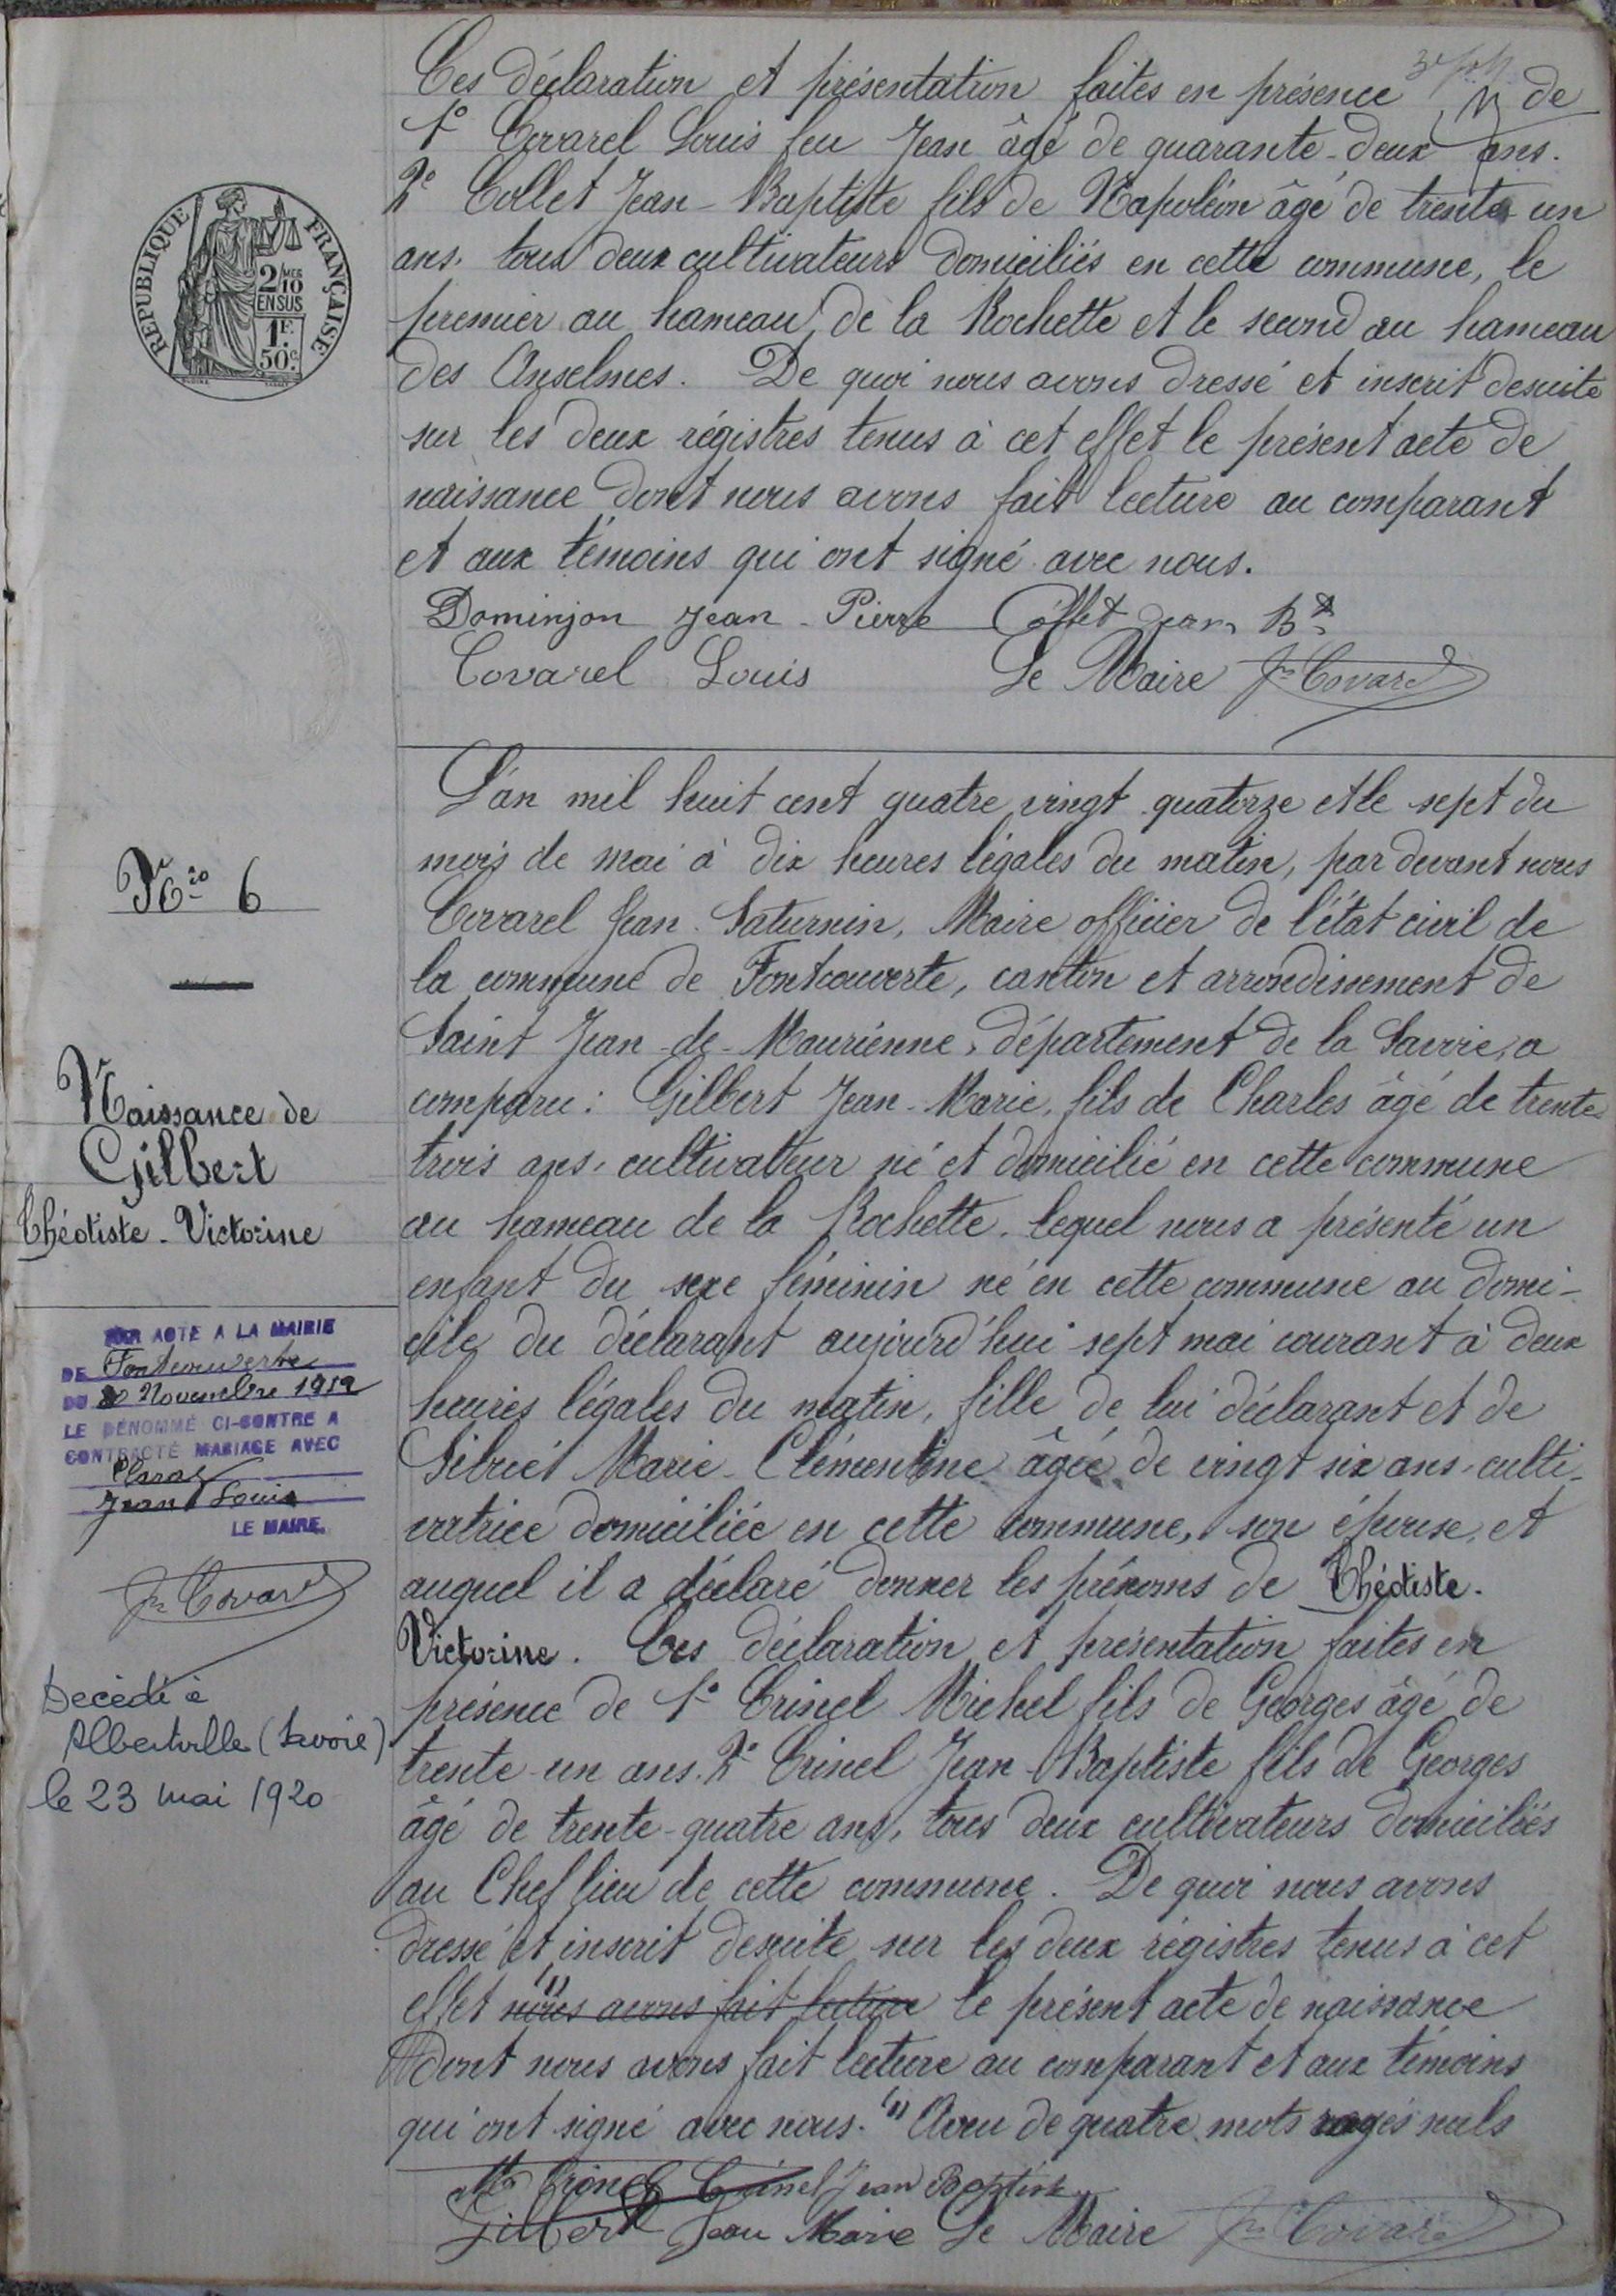 Ces déclaration et présentation faites en présence de
1° Covarel Louis feu Jean âgé de quarante-deux ans.
2° Collet Jean-Baptiste fils de Napoléon âgé de trente un
ans, tous deux cultivateurs domiciliés en cette commune, le
premier au hameau de la Rochette et le second au hameau
des Anselmes. De quoi nous avons dressé et inscrit desuite
sur les deux régistres tenus à cet effet le présent acte de
naissance dont nous avons fait lecture au comparant
et aux témoins qui ont signé avec nous.
Dominjon Jean-Pierre Collet Jean Bte
Covarel Louis Le Maire Jn Covarel
REPUBLIQUE FRANÇAISE
2/10 MES
EN SUS
1F.
50c.
Nro 6
Naissance de
Gilbert
Théotiste-Victorine
L'an mil huit cent quatre vingt quatorze et le sept du
mois de mai à dix heures légales du matin, par devant nous
Covarel Jean-Saturnin, Maire officier de l'état civil de
la commune de Fontcouverte, canton et arrondissement de
Saint Jean-de-Maurienne, département de la Savoie, a
comparu: Gilbert Jean-Marie, fils de Charles âgé de trente
trois ans, cultivateur né et domicilié en cette commune
au hameau de la Rochette, lequel nous a présenté un
enfant du sexe féminin né en cette commune au domi-
cile du déclarant aujourd'hui sept mai courant à deux
heures légales du matin, fille de lui déclarant et de
Marie-Clémentine âgée de vingt six ans, culti-
vatrice domiciliée en cette commune, son épouse, et
auquel il a déclaré donner les prénoms de Théotiste-
Victorine. Ces déclaration et présentation faites en
présence de 1° Crinel Michel fils de Georges âgé de
trente-un ans. 2° Crinel Jean-Baptiste fils de Georges
âgé de trente-quatre ans, tous deux cultivateurs domiciliés
au Chef lieu de cette commune. De quoi nous avons
dressé et inscrit desuite sur les deux régistres tenus à cet
effet (1) nous avons fait lecture le présent acte de naissance
dont nous avons fait lecture au comparant et aux témoins
qui ont signé avec nous. (1) Aveu de quatre mots rayés nuls
Crinel Jean Baptiste
Gilbert Jean Marie Le Maire Jn Covarel
PAR ACTE A LA MAIRIE
DE Fontcouverte
DU Novembre 1919
LE DÉNOMMÉ CI-CONTRE A
CONTRACTÉ MARIAGE AVEC
Jean Louis
LE MAIRE.
Jn Covarel
Décédé à
Albertville (Savoie)
le 23 mai 1920